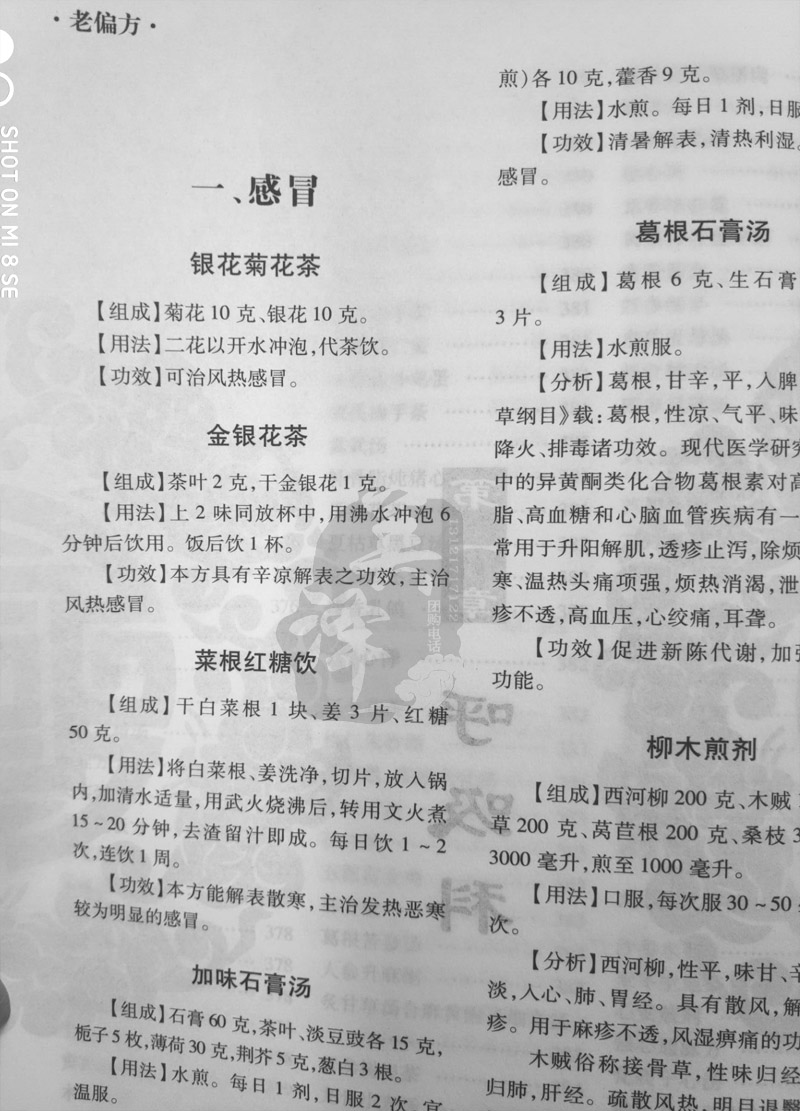 ·老偏方·
SHOT ON MI 8 SE
一、感冒
银花菊花茶
【组成】菊花10克、银花10克。
【用法】二花以开水冲泡,代茶饮。
【功效】可治风热感冒。
金银花茶
【组成】茶叶2克,干金银花1克。
【用法】上2味同放杯中,用沸水冲泡6
分钟后饮用。饭后饮1杯。
【功效】本方具有辛凉解表之功效,主治
风热感冒。
菜根红糖饮
【组成】干白菜根1块、姜3片、红糖
50克。
【用法】将白菜根、姜洗净,切片,放入锅
内,加清水适量,用武火烧沸后,转用文火煮
15~20分钟,去渣留汁即成。每日饮1~2
次,连饮1周。
【功效】本方能解表散寒,主治发热恶寒
较为明显的感冒。
加味石膏汤
【组成】石膏60克,茶叶、淡豆豉各15克,
栀子5枚,薄荷30克,荆芥5克,葱白3根。
【用法】水煎。每日1剂,日服2次,宜
温服。
煎)各10克,藿香9克。
【用法】水煎。每日1剂,日服
【功效】清暑解表,清热利湿。
感冒。
葛根石膏汤
【组成】葛根6克、生石膏
3片。
【用法】水煎服。
【分析】葛根,甘辛,平,入脾
草纲目》载:葛根,性凉、气平、味
降火、排毒诸功效。现代医学研究
中的异黄酮类化合物葛根素对高
脂、高血糖和心脑血管疾病有一
常用于升阳解肌,透疹止泻,除烦
寒、温热头痛项强,烦热消渴,泄
疹不透,高血压,心绞痛,耳聋。
【功效】促进新陈代谢,加强
功能。
柳木煎剂
【组成】西河柳200克、木贼
草200克、莴苣根200克、桑枝3
3000毫升,煎至1000毫升。
【用法】口服,每次服30~50
次。
【分析】西河柳,性平,味甘、辛
淡,入心、肺、胃经。具有散风,解
疹。用于麻疹不透,风湿痹痛的功
木贼俗称接骨草,性味归经
归肺,肝经。疏散风热,明目退翳
团购电话